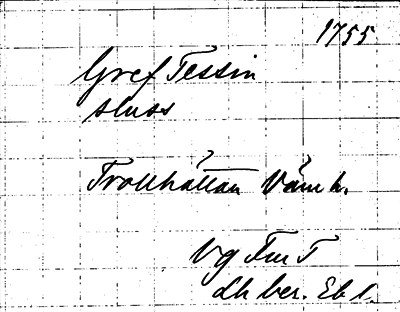 1755
Gref Tessin
sluss
Trollhättan Vänh.
Vg Fu T
Lh ber. Eb 1.